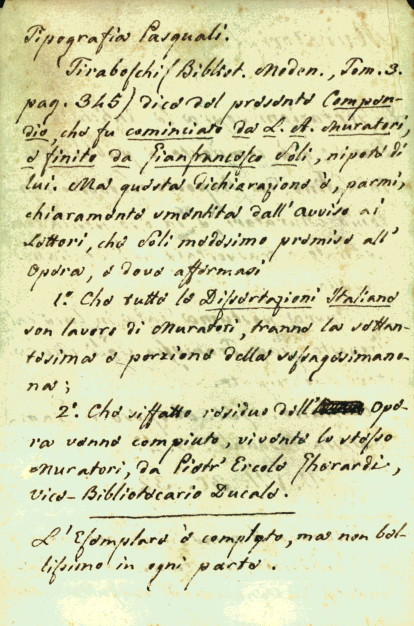 Tipografia Pasquali.
Tiraboschi (Bibliot. Moden., Tom. 3.
pag. 345) dice del presente Compen-
dio, che fu cominciato da L. A. Muratori,
e finito da Gianfrancesco Soli, nipote di
lui. Ma questa dichiarazione è, parmi,
chiaramente smentita dall'avviso ai
Lettori, che Soli medesimo premise all'
Opera, e dove affermasi
1.º Che tutte le Dissertazioni Italiane
son lavoro di Muratori, tranne la settan-
tesima e porzione della sessagesimano-
na;
2.º Che siffatto residuo dell' Ope-
ra venne compiuto, vivente lo stesso
Muratori, da Pietr' Ercole Gherardi,
vice-Bibliotecario Ducale.
L'Esemplare è completo, ma non bel-
lissimo in ogni parte.